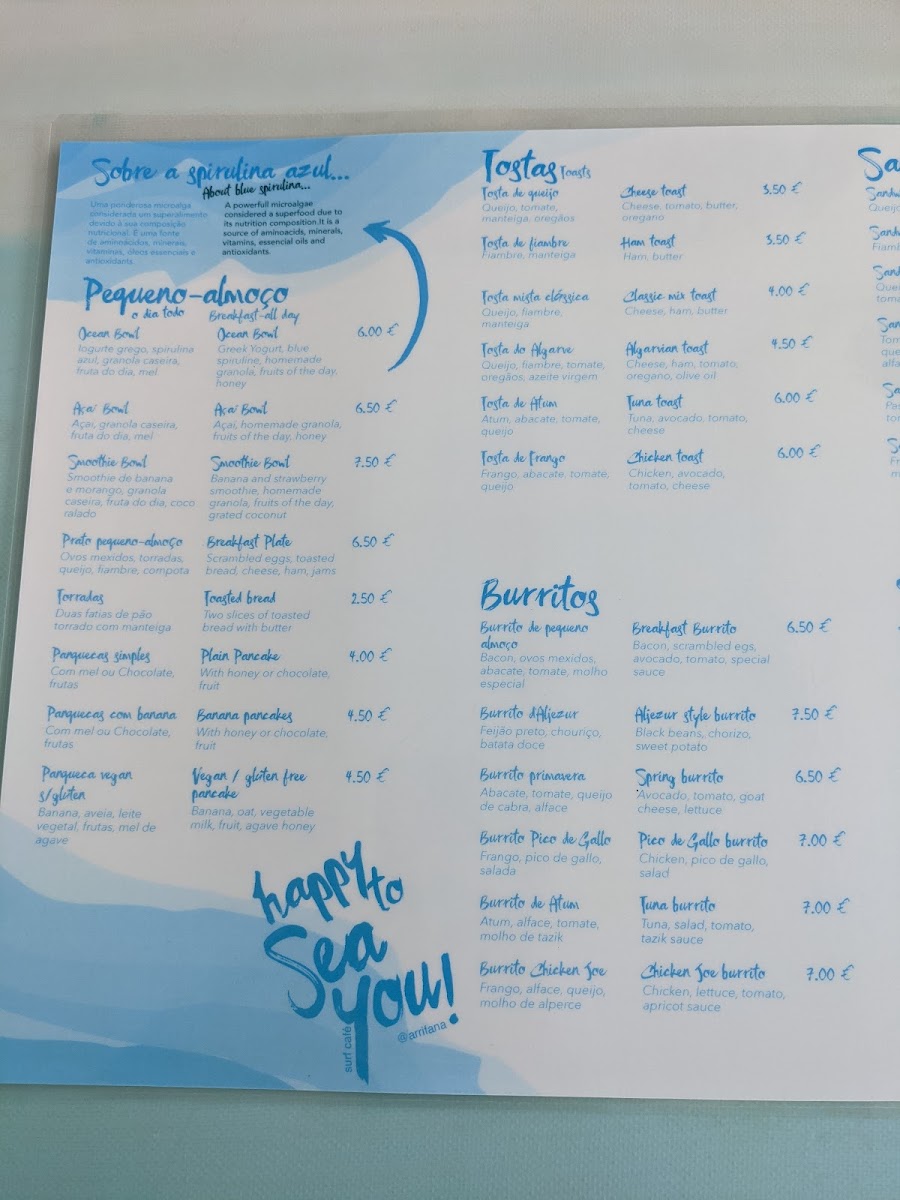 Sobre a spirulina azul...
About blue spirulina...
Uma ponderosa microalga
considerada um superalimento
devido à sua composição
nutricional. É uma fonte
de aminoácidos, minerais,
vitaminas, óleos essenciais e
antioxidants.
A powerfull microalgae
considered a superfood due to
its nutrition composition.It is a
source of aminoacids, minerals,
vitamins, essencial oils and
antioxidants.
Pequeno-almoço
o dia todo
Breakfast-all day
Ocean Bowl
Iogurte grego, spirulina
azul, granola caseira,
fruta do dia, mel
Ocean Bowl 6.00 €
Greek Yogurt, blue
spiruline, homemade
granola, fruits of the day,
honey
Açaí Bowl
Açaí, granola caseira,
fruta do dia, mel
Açaí Bowl 6.50 €
Açaí, homemade granola,
fruits of the day, honey
Smoothie Bowl
Smoothie de banana
e morango, granola
caseira, fruta do dia, coco
ralado
Smoothie Bowl 7.50 €
Banana and strawberry
smoothie, homemade
granola, fruits of the day,
grated coconut
Prato pequeno-almoço
Ovos mexidos, torradas,
queijo, fiambre, compota
Breakfast Plate 6.50 €
Scrambled eggs, toasted
bread, cheese, ham, jams
Torradas
Duas fatias de pão
torrado com manteiga
Toasted bread 2.50 €
Two slices of toasted
bread with butter
Panquecas simples
Com mel ou Chocolate,
frutas
Plain Pancake 4.00 €
With honey or chocolate,
fruit
Panquecas com banana
Com mel ou Chocolate,
frutas
Banana pancakes 4.50 €
With honey or chocolate,
fruit
Panqueca vegan
s/glúten
Banana, aveia, leite
vegetal, frutas, mel de
agave
Vegan / gluten free 4.50 €
pancake
Banana, oat, vegetable
milk, fruit, agave honey
happy to
Sea
you!
surf café
@arrifana
Tostas Toasts
Tosta de queijo
Queijo, tomate,
manteiga, oregãos
Cheese toast 3.50 €
Cheese, tomato, butter,
oregano
Tosta de fiambre
Fiambre, manteiga
Ham toast 3.50 €
Ham, butter
Tosta mista clássica
Queijo, fiambre,
manteiga
Classic mix toast 4.00 €
Cheese, ham, butter
Tosta do Algarve
Queijo, fiambre, tomate,
oregãos, azeite virgem
Algarvian toast 4.50 €
Cheese, ham, tomato,
oregano, olive oil
Tosta de Atum
Atum, abacate, tomate,
queijo
Tuna toast 6.00 €
Tuna, avocado, tomato,
cheese
Tosta de Frango
Frango, abacate, tomate,
queijo
Chicken toast 6.00 €
Chicken, avocado,
tomato, cheese
Burritos
Burrito de pequeno
almoço
Bacon, ovos mexidos,
abacate, tomate, molho
especial
Breakfast Burrito 6.50 €
Bacon, scrambled egs,
avocado, tomato, special
sauce
Burrito dAljezur
Feijão preto, chouriço,
batata doce
Aljezur style burrito 7.50 €
Black beans, chorizo,
sweet potato
Burrito primavera
Abacate, tomate, queijo
de cabra, alface
Spring burrito 6.50 €
Avocado, tomato, goat
cheese, lettuce
Burrito Pico de Gallo
Frango, pico de gallo,
salada
Pico de Gallo burrito 7.00 €
Chicken, pico de gallo,
salad
Burrito de Atum
Atum, alface, tomate,
molho de tazik
Tuna burrito 7.00 €
Tuna, salad, tomato,
tazik sauce
Burrito Chicken Joe
Frango, alface, queijo,
molho de alperce
Chicken Joe burrito 7.00 €
Chicken, lettuce, tomato,
apricot sauce